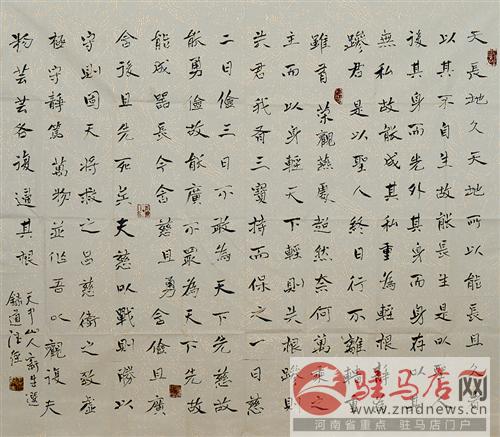 天長地久天地所以能長且久者
以其不自生故能長生是以
後其身而先外其身而身存以其
無私故能成其私重為輕根靜
躁君是以聖人終日行不離重
雖有榮觀燕處超然奈何萬乘之
主而以身輕天下輕則失根躁則
失君我有三寶持而保之一曰慈
二曰儉三曰不敢為天下先慈故
能勇儉故能廣不敢為天下先故
能成器長今舍慈且勇舍儉且廣
舍後且先死矣夫慈以戰則勝以
守則固天將救之以慈衛之致虛
極守靜篤萬物並作吾以觀復夫
物芸芸各復歸其根
天中山人
錄道德經
驻马店网
www.zmdnews.cn
河南省重点新闻门户